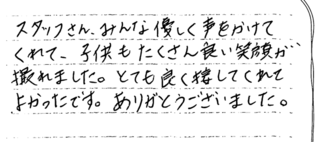 スタッフさん、みんな優しく声をかけて
くれて、子供もたくさん良い笑顔が
撮れました。とても良く接してくれて
よかったです。ありがとうございました。